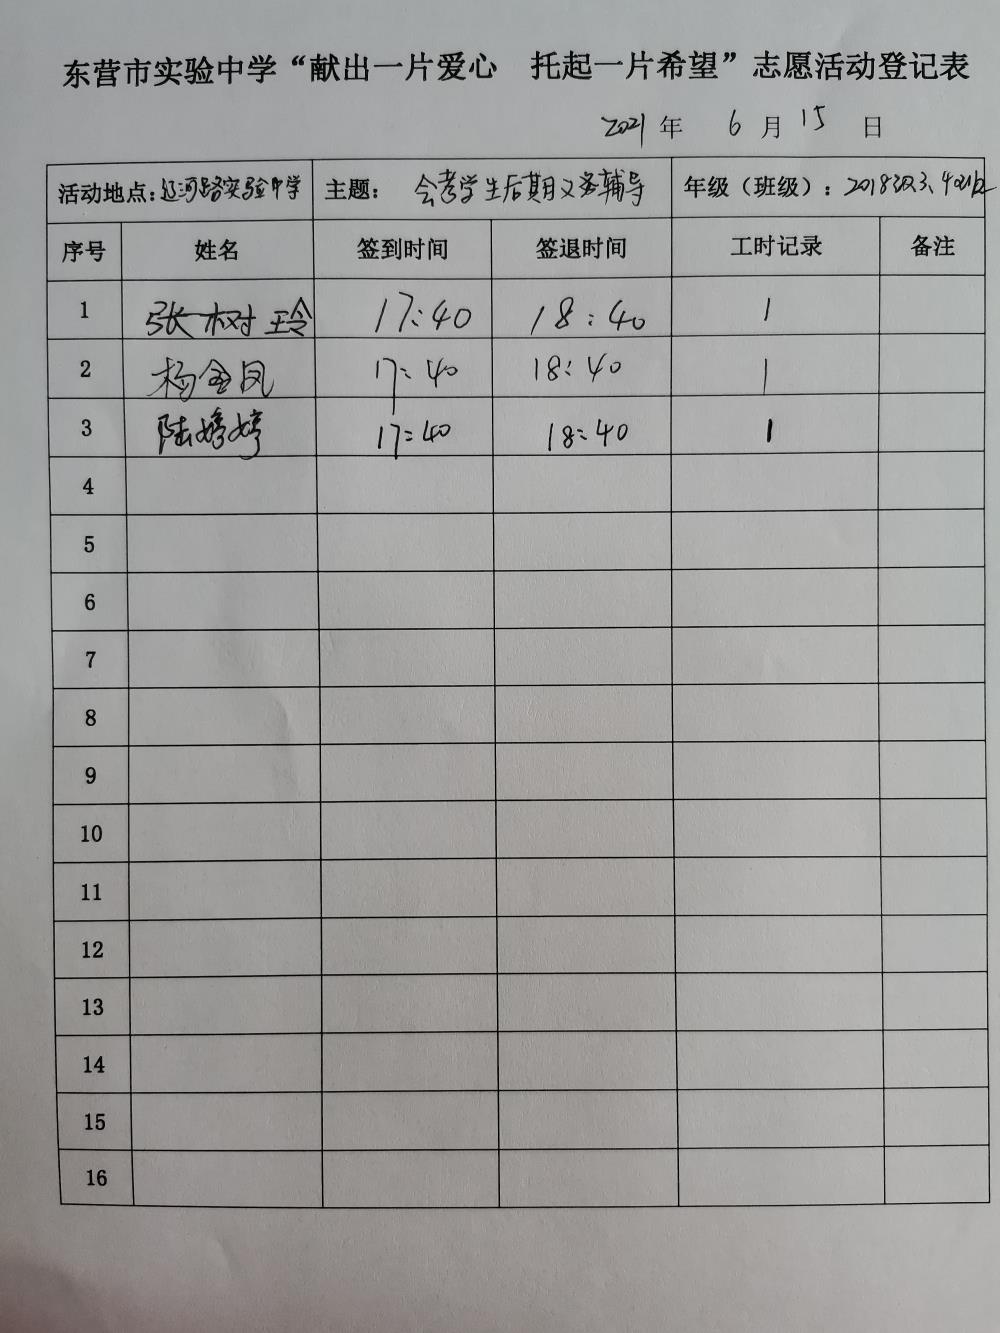 东营市实验中学“献出一片爱心 托起一片希望”志愿活动登记表
2021年 6月15日
活动地点:辽河路实验中学 主题: 会考学生后期义务辅导 年级(班级):2018级3、4班
序号 姓名 签到时间 签退时间 工时记录 备注
1 张树玲 17:40 18:40 1
2 杨金凤 17:40 18:40 1
3 陆婷婷 17:40 18:40 1
4
5
6
7
8
9
10
11
12
13
14
15
16